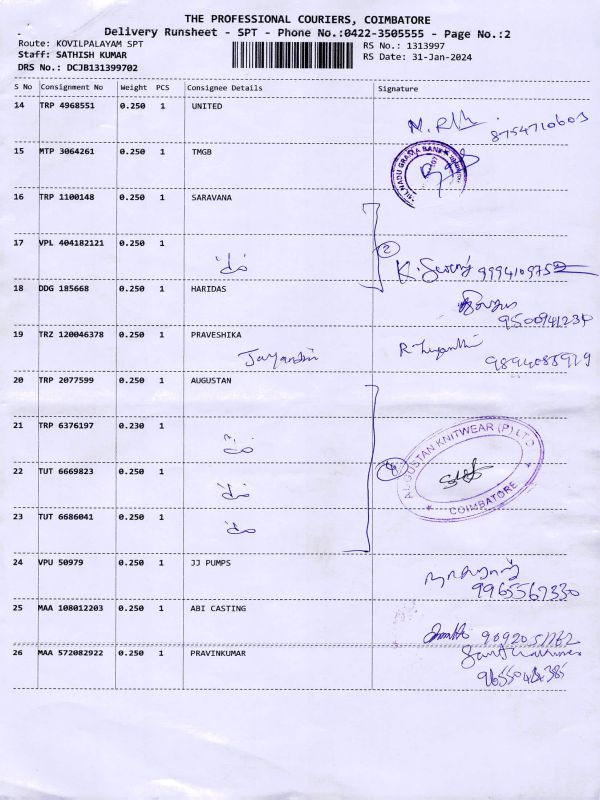 THE PROFESSIONAL COURIERS, COIMBATORE
Delivery Runsheet - SPT - Phone No.:0422-3505555 - Page No.:2
Route: KOVILPALAYAM SPT RS No.: 1313997
Staff: SATHISH KUMAR RS Date: 31-Jan-2024
DRS No.: DCJB131399702
S No Consignment No Weight PCS Consignee Details Signature
14 TRP 4968551 0.250 1 UNITED
8754710603
15 MTP 3064261 0.250 1 TMGB
16 TRP 1100148 0.250 1 SARAVANA
17 VPL 404182121 0.250 1
2
18 DDG 185668 0.250 1 HARIDAS
9500941234
19 TRZ 120046378 0.250 1 PRAVESHIKA
20 TRP 2077599 0.250 1 AUGUSTAN
21 TRP 6376197 0.230 1
AUGUSTAN KNITWEAR (P) LTD
COIMBATORE
22 TUT 6669823 0.250 1
4
23 TUT 6686041 0.250 1
24 VPU 50979 0.250 1 JJ PUMPS
9965567330
25 MAA 108012203 0.250 1 ABI CASTING
26 MAA 572082922 0.250 1 PRAVINKUMAR